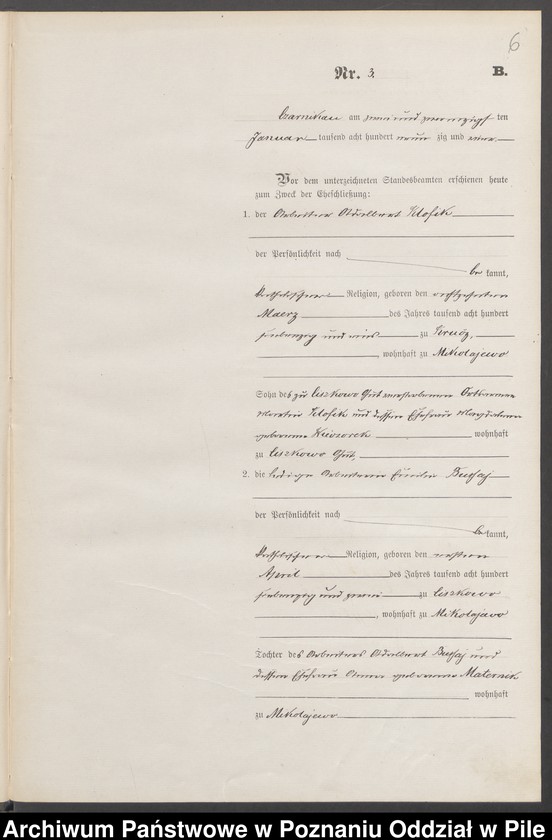 6
Nr. 3.
B.
Czarnikau am zwei und zwanzigsten
Januar tausend acht hundert neunzig und eins
Vor dem unterzeichneten Standesbeamten erschienen heute
zum Zweck der Eheschließung:
1. der Arbeiter Adalbert Klosek
der Persönlichkeit nach
be kannt,
katholischer Religion, geboren den
Maerz des Jahres tausend acht hundert
siebenzig und eins zu
, wohnhaft zu Mikolajewo
Sohn des zu Ciszkowo Gut verstorbenen
Martin Klosek und dessen Ehefrau Magdalena
geborene wohnhaft
zu Ciszkowo Gut,
2. die ledige Arbeiterin Emilie
der Persönlichkeit nach
be kannt,
katholischer Religion, geboren den ersten
April des Jahres tausend acht hundert
siebenzig und zwei zu Ciszkowo
, wohnhaft zu Mikolajewo
Tochter des Arbeiters Adalbert und
dessen Ehefrau Anna geborene Maternik
wohnhaft
zu Mikolajewo
Archiwum Państwowe w Poznaniu Oddział w Pile